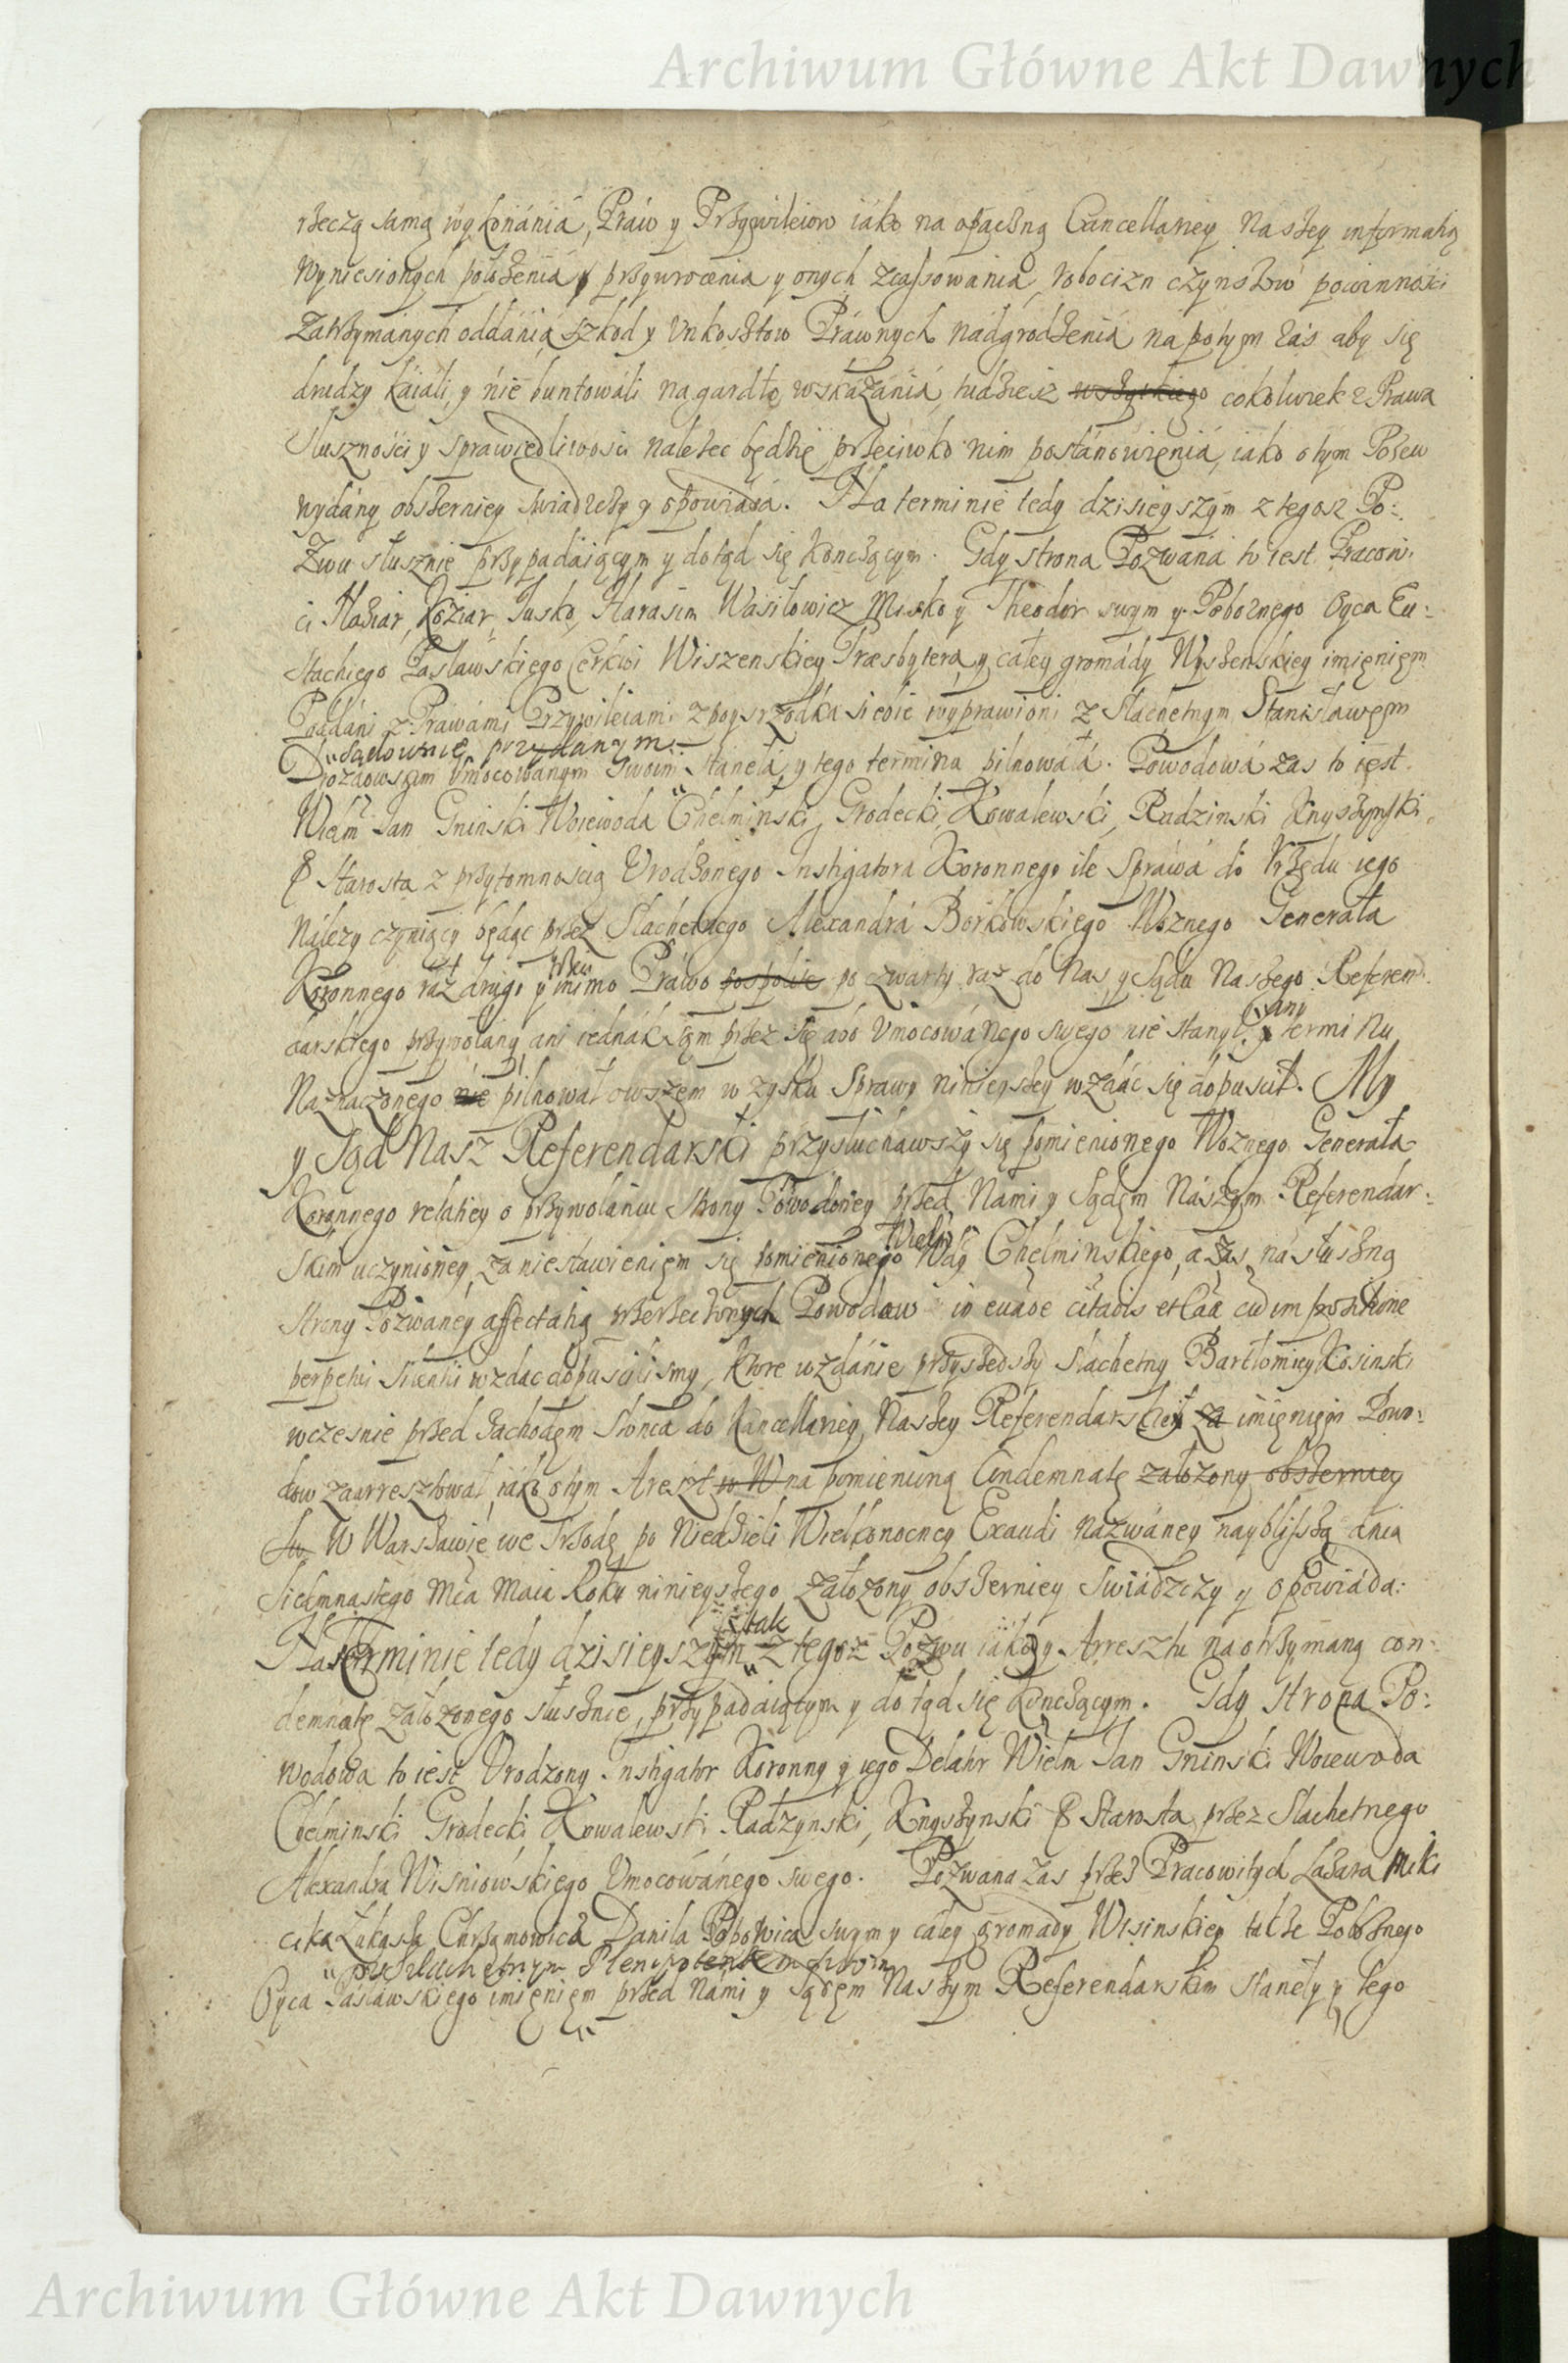 Archiwum Główne Akt Dawnych
rzeczą samą wykonánia, Praw y Przywileiow iáko na opaczną Cancellariey Naszey informatią
wyniesionych położenia y przywrocenia y onych zcassowania, robocizn czynszow powinnosci
Zatrzymanych oddánia szkod y Unkosztow Práwnych nádgrodzenia na potym zás aby się
drudzy káiali, y nie buntowáli na gardło wskazánia, tudziesz wszytkiego cokolwiek z Prawa
Słusznośći y sprawiedliwości należec będzie przeciwko nim postánowienia, iako o tym Pozew
wydány obszerniey swiadczy y opowiada. Na terminie tedy dzisieyszym z tegosz Po:
Zwu słusznie przypadáiącym y dotąd się kończącym. Gdy strona Pozwana to iest Pracowi:
ci Haziar, Koziar, Jusko, Harasim Wasilowicz Misko y Theodor swym y Pobożnego Oyca Eu:
stachiego Zasławskiego Cerkwi Wiszenskiey Præsbytera y całey gromády Wyszenskiey imieniem
Poddáni z Práwámi Przywileiami z pośrzodka siebie wyprawioni z Slachetnym Stanisławem
"sądownie przydanym
Drozdowskim Umocowanym swoim Stanęłá y tego termina pilnowáłá. Powodowá zas to iest
Wielm Jan Gninski Woiewoda Chełmiński, Grodecki, Kowalewski, Radzinski Knyszynski
& Starosta z przytomnoscią Urodzonego Instigatora Koronnego ile Spráwá do Urzędu iego
Náleży czyniący będąc przez Slachetnego Alexandrá Borkowskiego Woznego Generała
Koronnego raz drugi y mimo Práwo pospolite po czwarty raz do Nas y Sądu Naszego Referen:
darskiego przywołany, ani iednák sam przez się abo Umocowánego swego nie stanął, y termi nu
Naznaczonego nie pilnował owszem w zysku Sprawy ninieyszey wzdać się dopuscił. My
y Sąd Nasz Referendarski przysłuchawszy się pomienionego Woznego Generała
Koronnego relatiey o przywołániu Strony Powodowey przed Námi y Sądem Nászym Referendar:
skim uczynioney, za niestawieniem się pomienionego Wdy Chełminskiego, a zás ná słuszną
Strony Pozwaney affectatią Powodow
perpetui Silentii wzdac dopuscilismy, ktore wzdánie przyszedszy Slachetny Bartłomiey Kosinski
wczesnie przed Zachodem Słonca do Kancellariey Naszey Referendarskiey za imieniem Powo:
dow zaarresztował, iáko o tym Areszt na pomienioną Condemnatę założony obszerniey
W Warszawie we Srzodę po Niedzieli Wielkonocney Exaudi názwáney naybliższą dnia
Siedmnastego Mca Maia Roku ninieyszego założony obszerniey Swiádczy y opowiáda:
tak
Na Terminie tedy dzisieyszym z tegosz Pozwu iáko y Arresztu na otrzymaną con:
demnatę założonego słusznie, przypadáiącym y dotąd się kończącym. Gdy Strona Po:
wodowa to iest Urodzony Instigator Koronny y iego Delator Wielm Jan Gninski Woiewoda
Chełminski Grodecki Kowalewski Radzynski, Knyszynski & Starosta przez Slachetnego
Alexandra Wisniowskiego Umocowánego swego. Pozwana zas przez Pracowitych Łazara Miki
cika Łukasza Danila Popowica swym y całey gromady Wisinskiey także Pobożnego
Oyca Zasławskiego imieniem przed Námi y Sądem Naszym Referendarskim Stanęły y tego
Archiwum Główne Akt Dawnych